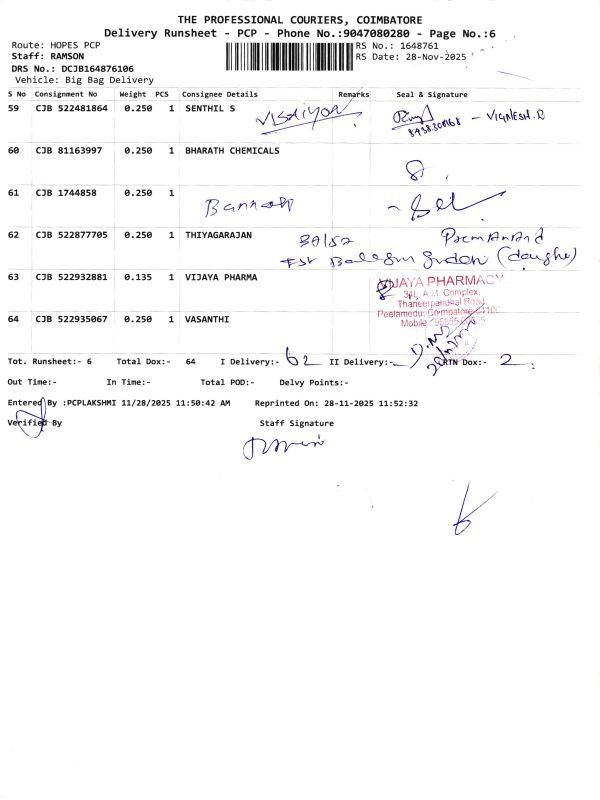 THE PROFESSIONAL COURIERS, COIMBATORE
Delivery Runsheet - PCP - Phone No.:9047080280 - Page No.:6
Route: HOPES PCP
RS No.: 1648761
Staff: RAMSON
RS Date: 28-Nov-2025
DRS No.: DCJB164876106
Vehicle: Big Bag Delivery
S No Consignment No Weight PCS Consignee Details Remarks Seal & Signature
59 CJB 522481864 0.250 1 SENTHIL S
- VIGNESH.R
60 CJB 81163997 0.250 1 BHARATH CHEMICALS
61 CJB 1744858 0.250 1
62 CJB 522877705 0.250 1 THIYAGARAJAN
63 CJB 522932881 0.135 1 VIJAYA PHARMA
VIJAYA PHARMACY
Complex,
Thaneerpandhal Road,
Peelamedu, Coimbatore
Mobile
64 CJB 522935067 0.250 1 VASANTHI
Tot. Runsheet:- 6 Total Dox:- 64 I Delivery:- 62 II Delivery:- RTN Dox:- 2
Out Time:- In Time:- Total POD:- Delvy Points:-
Entered By :PCPLAKSHMI 11/28/2025 11:50:42 AM Reprinted On: 28-11-2025 11:52:32
Verified By Staff Signature